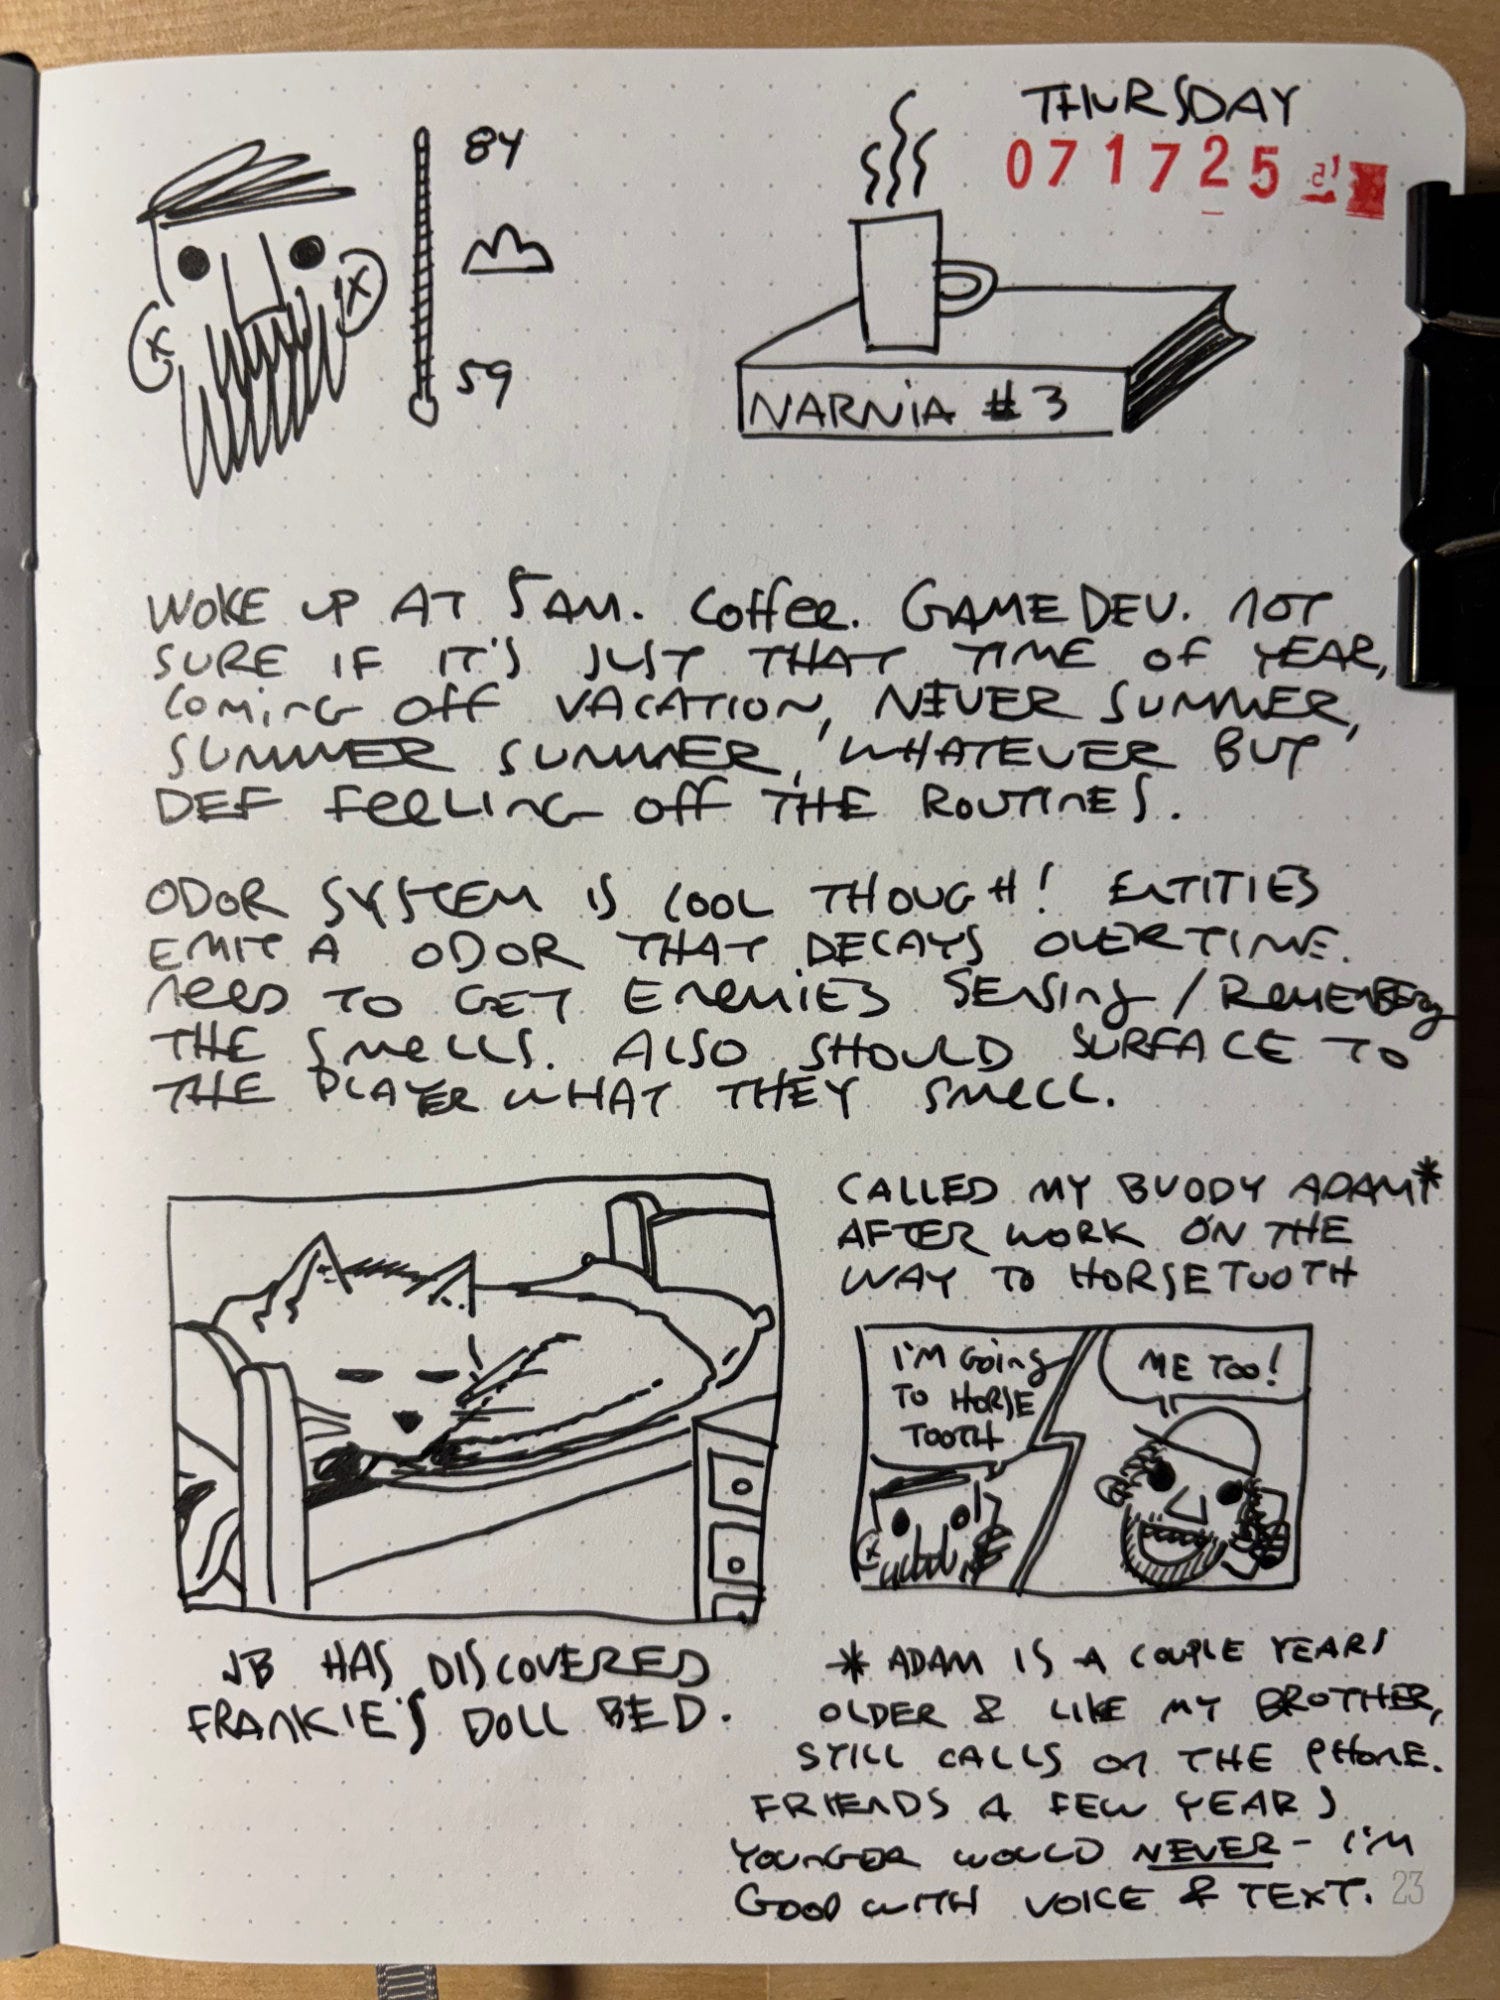 THURSDAY
071725
84
59
NARNIA #3
WOKE UP AT 5AM. COFFEE. GAMEDEV. NOT
SURE IF IT'S JUST THAT TIME OF YEAR,
COMING OFF VACATION, NEVER SUMMER,
SUMMER SUMMER, WHATEVER BUT
DEF FEELING OFF THE ROUTINES.
ODOR SYSTEM IS COOL THOUGH! ENTITIES
EMIT A ODOR THAT DECAYS OVERTIME.
NEED TO GET ENEMIES SENSING /
THE SMELLS. ALSO SHOULD SURFACE TO
THE PLAYER WHAT THEY SMELL.
JB HAS DISCOVERED
FRANKIE'S DOLL BED.
CALLED MY BUDDY ADAM*
AFTER WORK ON THE
WAY TO HORSETOOTH
I'M GOING
TO HORSE
TOOTH
ME TOO!
* ADAM IS A COUPLE YEARS
OLDER & LIKE MY BROTHER,
STILL CALLS ON THE PHONE.
FRIENDS A FEW YEARS
YOUNGER WOULD NEVER - I'M
GOOD WITH VOICE & TEXT.
23